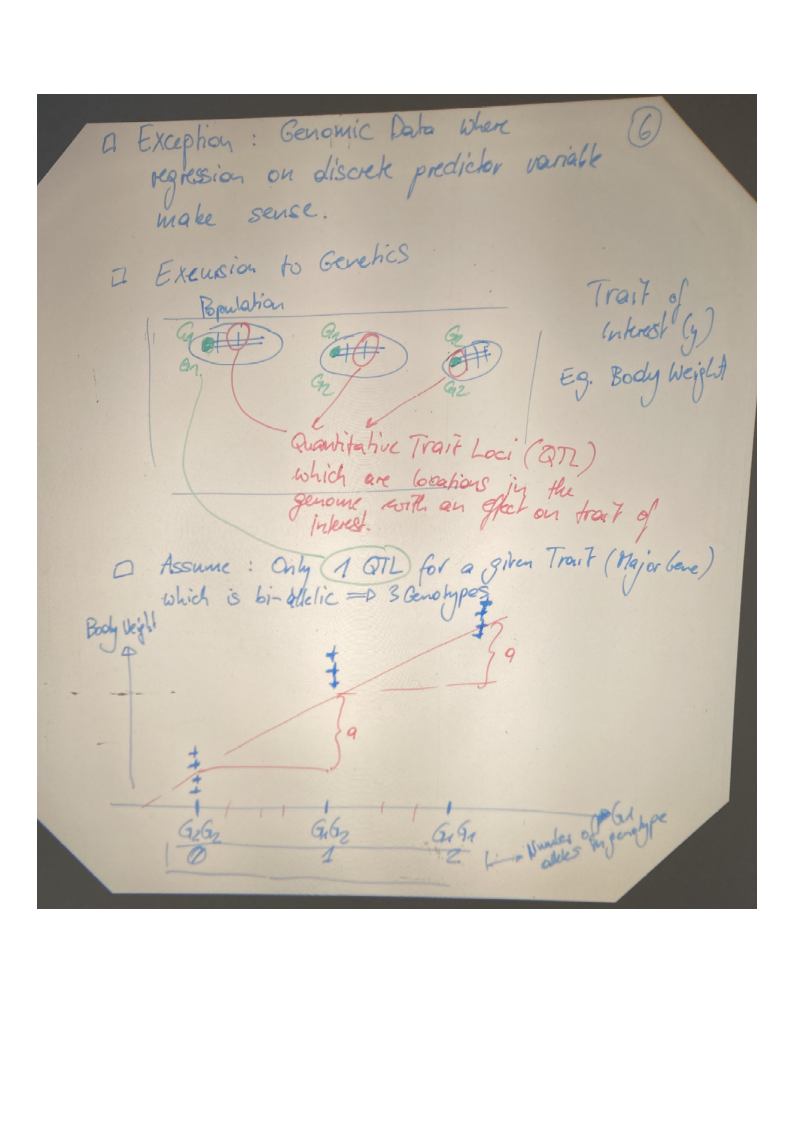 6
Exception : Genomic Data where
regression on discrete predictor variable
make sense.
Exkursion to Genetics
Population
Trait of
Interest (y)
Eg. Body Weight
G1 G1 G2
G1 G2 G2
Quantitative Trait Loci (QTL)
which are locations in the
genome with an effect on trait of
interest.
Assume : Only 1 QTL for a given Trait (Major Gene)
which is bi-allelic => 3 Genotypes
Body Weight
a
a
G2G2 G1G2 G1G1
0 1 2
Number of G1
alleles in genotype